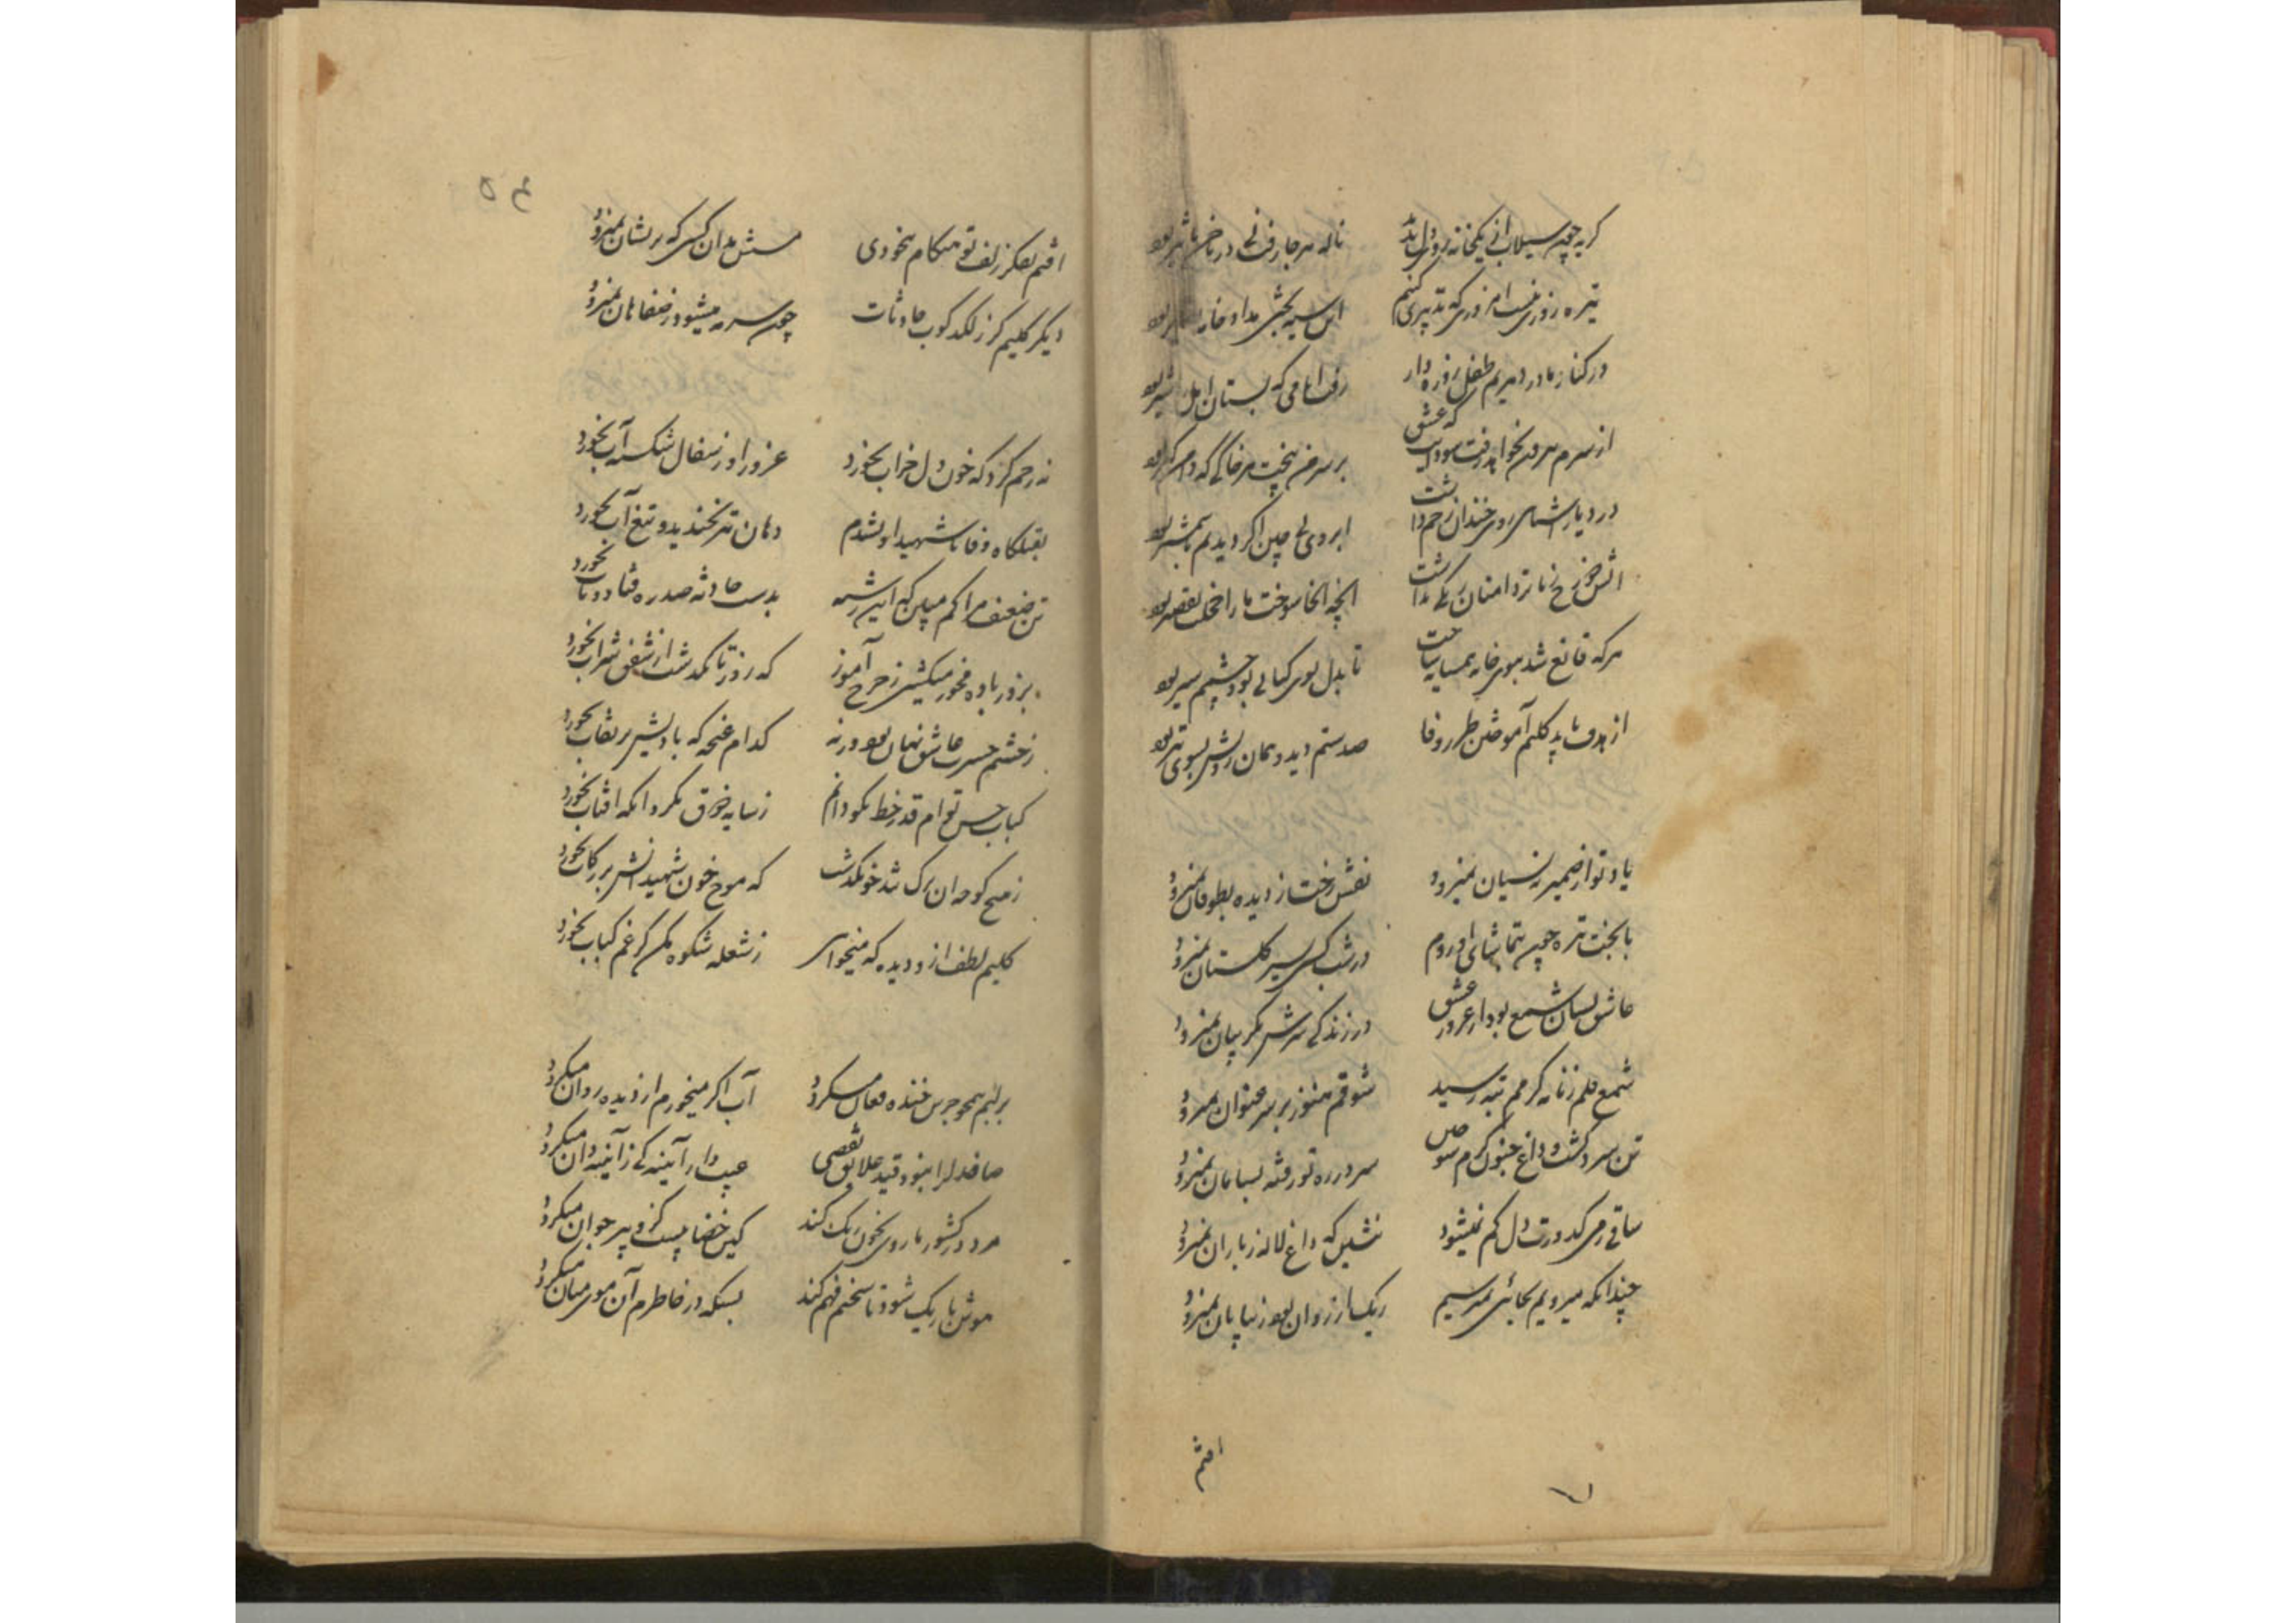 گریه چون سیلاب از یکخانه رو دل نماند ناله هر جا رفت در تاثیر بود
تیره روزی نیست امروزی که تدبیری کنیم این سیه بختی مداد خامه تقدیر بود
در کنار مادر دهریم طفل روزه دار رفت ایامی که پستان امل را شیر بود
از سرم بیرون نخواهد رفت سودایت که عشق بر سر من بیخت هر خاکی که دامنگیر بود
در دیارش روی خندان زخم داشت ابروی بی چین اگر دیدیم شمشیر بود
آتش دوزخ ز ما تردامنان رنگی نداشت آنچه آنجا سوخت ما را خجلت تقصیر بود
هر که قانع شد ببوی خانه همسایه ساخت تا بدل بوی کبابی بود چشمم سیر بود
از هدف باید کلیم آموختن طرز وفا صد ستم دید و همان رویش بسوی تیر بود
یاد تو از ضمیر به نسیان نمیرود نقش رخت ز دیده بطوفان نمیرود
با بخت تیره چون بتماشای او روم در شب کسی بسیر گلستان نمیرود
عاشق بسان شمع بود از غرور عشق در زندگی سرش بگریبان نمیرود
شمع قلم ز نامه گرمم بته رسید شوقم هنوز بر سر عنوان نمیرود
تن سرد گشت و داغ جنون گرم سوختن سر در ره تو رفته بسامان نمیرود
ساقی ز می کدورت دل کم نمیشود بنشین که داغ لاله ز باران نمیرود
چندانکه میرویم بجائی نمیرسیم ریگ ار روان بود ز بیابان نمیرود
افتم
۵۴
افتم بفکر زلف تو هنگام بیخودی مستش مدان کسی که پریشان نمیرود
دیگر کلیم گر ز لگدکوب حادثات چون سرمه میشود ز صفاهان نمیرود
نه رحم کرد که خون دل خراب نخورد غرور او ز سفال شکسته آب نخورد
بقتلگاه وفا تا شهید او نشدم دهان تیر نخندید و تیغ آب نخورد
تن ضعیف مرا کم مبین که این رشته بدست حادثه صد ره فتاد و تاب نخورد
بروز باده مخور میکشی ز چرخ آموز که روز تا نگذشت از شفق شراب نخورد
ز چشم حسرت عاشق نهان بود ورنه کدام غنچه که بادش بر نقاب نخورد
کباب حسن توام قدر خط نکو دانم ز سایه ذوق نکرد آنکه آفتاب نخورد
ز هیچ کوچه آن ترک تندخو نگذشت که موج خون شهیدانش بر رکاب نخورد
کلیم لطف از و دیده که میخواهی ز شعله شکوه مکن گر غم کباب نخورد
بر لبم همچو جرس خنده فغان میگردد آب اگر میخورم از دیده روان میگردد
صافدل را نبود قید علایق نقصی عیب دار آینه کی ز آینه دان میگردد
مرد در کشور ما روی بخون رنگ کند کین خضابیست کزو پیر جوان میگردد
موشن باریک شود تا سخنم فهم کند بسکه در خاطرم آن موی میان میگردد